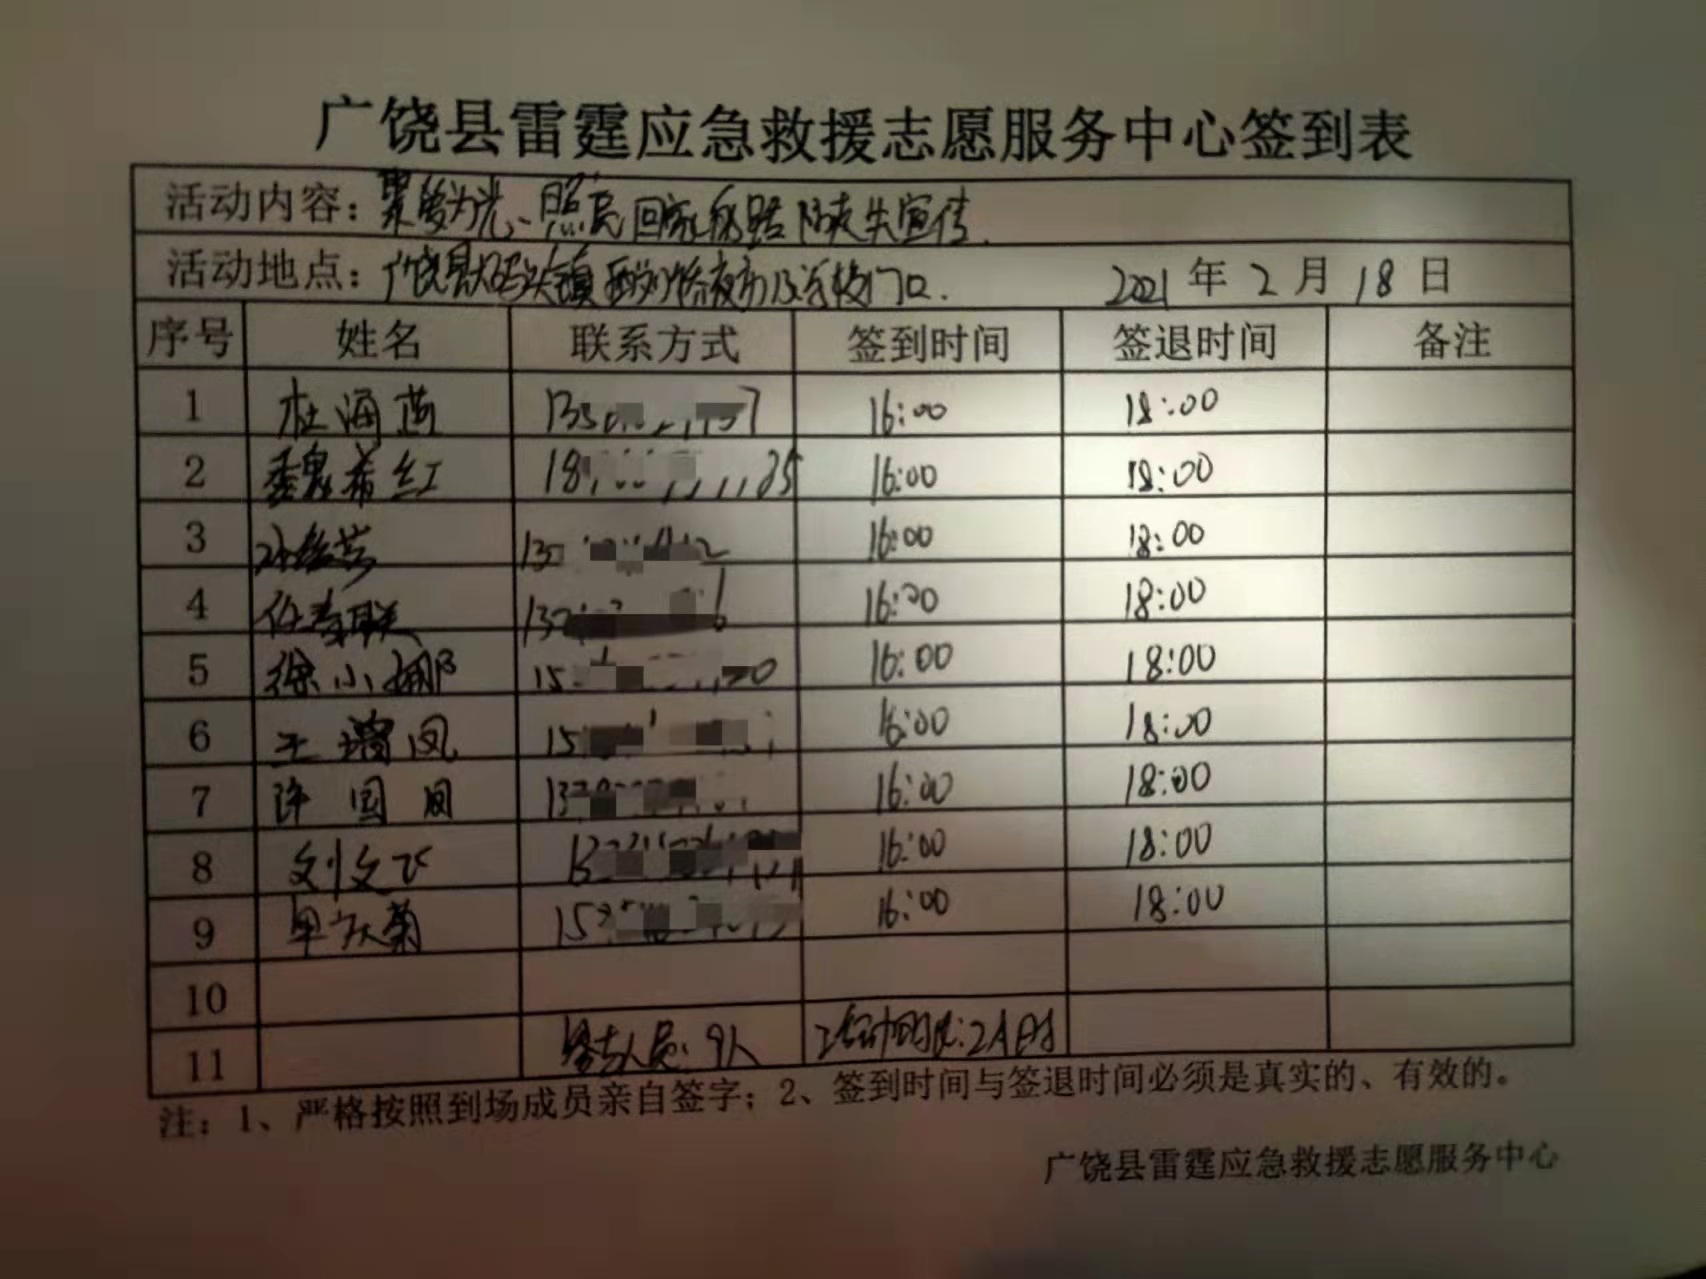 广饶县雷霆应急救援志愿服务中心签到表
活动内容：聚爱为光、照亮回家的路 防走失宣传.
活动地点：广饶县大码头镇 夜市及学校门口. 2021年2月18日
序号 姓名 联系方式 签到时间 签退时间 备注
1 杜海燕 16:00 18:00
2 魏希红 16:00 18:00
3 16:00 18:00
4 任春联 16:00 18:00
5 徐小娜 15 16:00 18:00
6 王瑞凤 15 16:00 18:00
7 许国凤 16:00 18:00
8 刘文飞 16:00 18:00
9 单庆菊 16:00 18:00
10
11 参与人员：9人 活动时长：2小时
注：1、严格按照到场成员亲自签字；2、签到时间与签退时间必须是真实的、有效的。
广饶县雷霆应急救援志愿服务中心